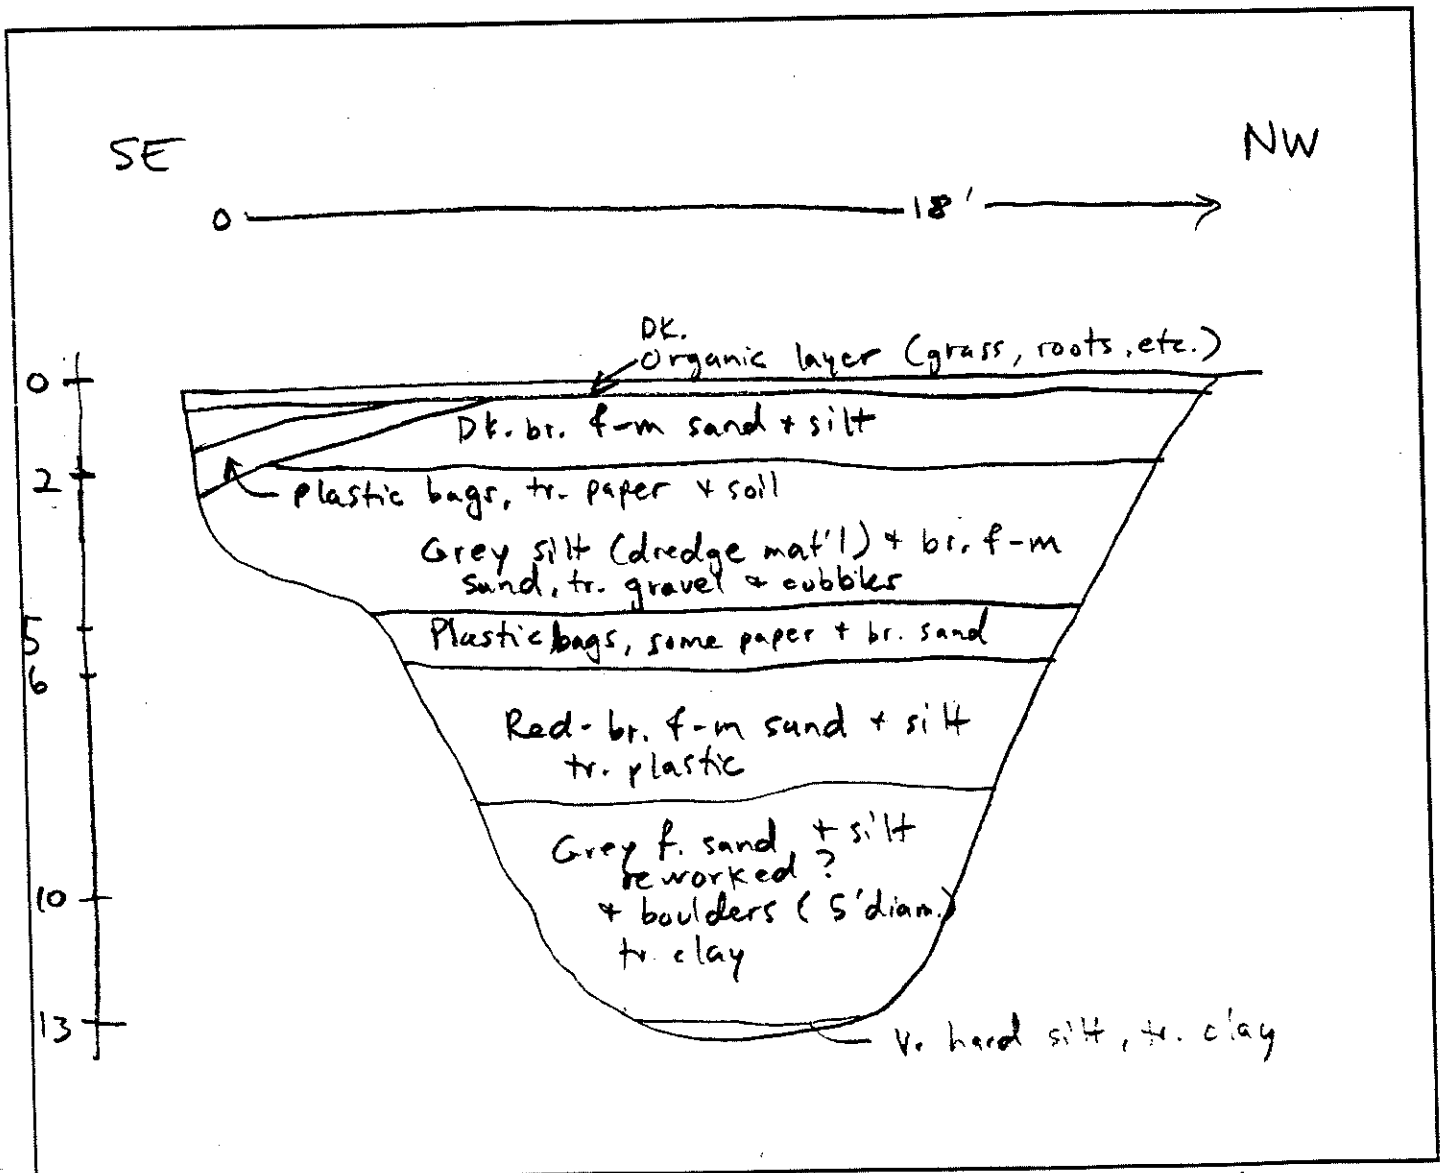 SE
NW
0
18'
Dk.
Organic layer (grass, roots, etc.)
0
Dk. br. f-m sand + silt
2
Plastic bags, tr. paper + soil
Grey silt (dredge mat'l) + br. f-m
sand, tr. gravel + cobbles
5
Plastic bags, some paper + br. sand
6
Red-br. f-m sand + silt
tr. plastic
Grey f. sand + silt
reworked?
10
+ boulders (5' diam.)
tr. clay
13
V. hard silt, tr. clay